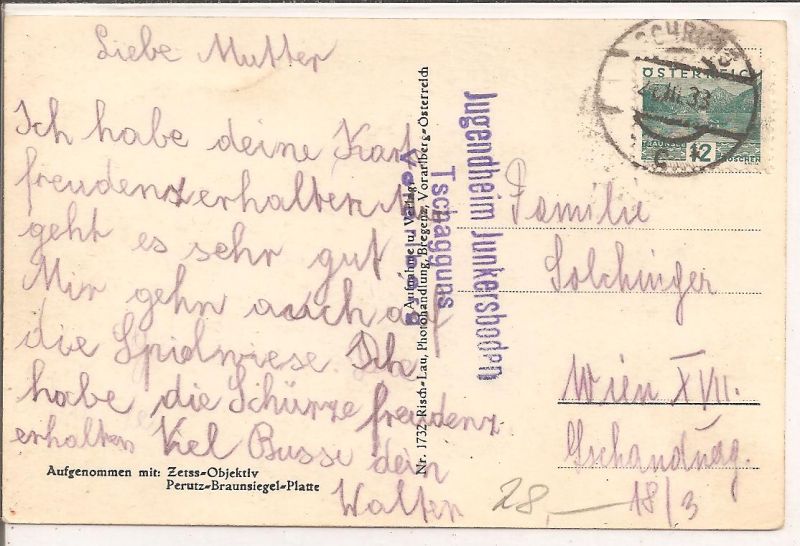 Liebe Mutter
Ich habe deine Kart
freudenz erhalten. Mir
geht es sehr gut.
Mir gehn auch auf
die Spielwiese. Ich
habe die Schürze freudenz
erhalten Viel Bussi dein
Walter
Aufgenommen mit: Zeiss-Objektiv
Perutz-Braunsiegel-Platte
Nr. 1732-Risch-Lau, Photohandlung, Bregenz, Vorarlberg-Österreich
Aufnahme u. Verlag
Jugendheim Junkersboden
Tschagguns
Vorarlberg
SCHRUNS
33
ÖSTERREICH
TRAUNSEE
12 GROSCHEN
Familie
Solchinger
Wien XVII.
18/3
28,—